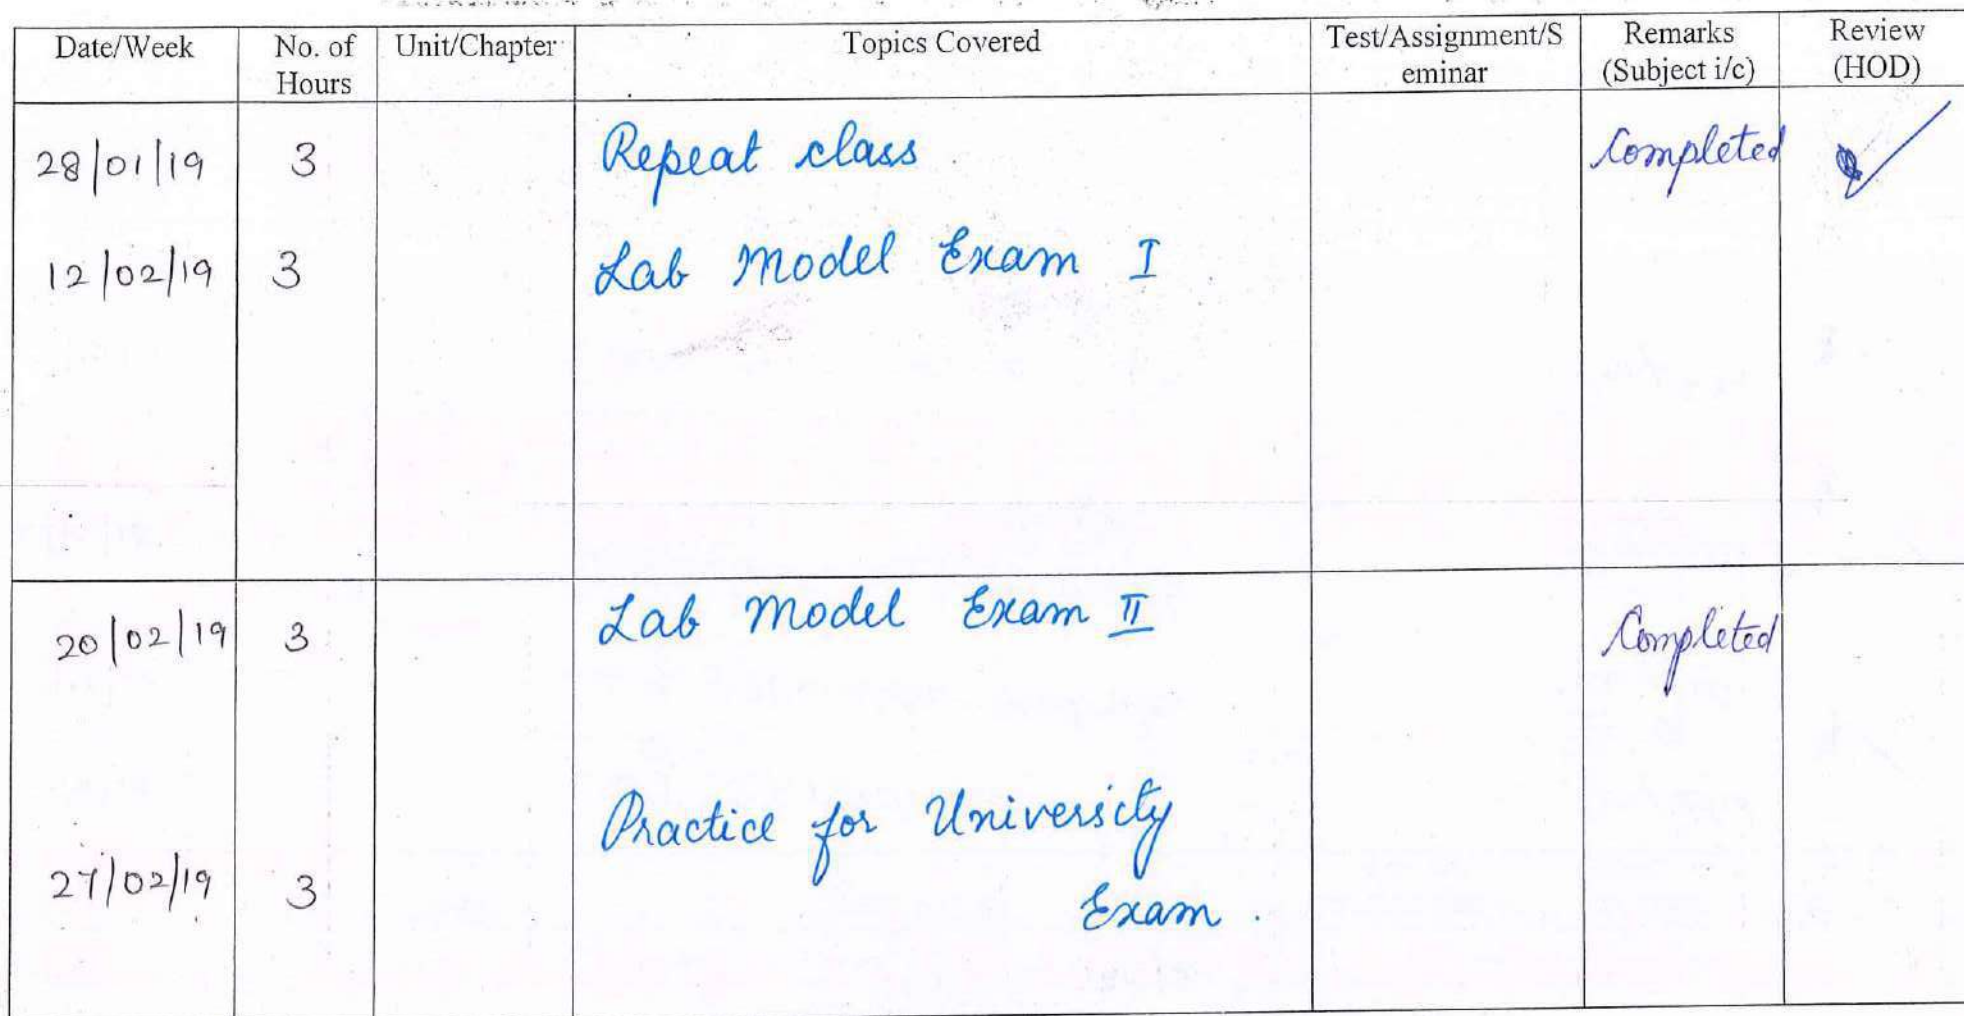 Date/Week No. of Hours Unit/Chapter Topics Covered Test/Assignment/S eminar Remarks (Subject i/c) Review (HOD)
28/01/19 3 Repeat class Completed
12/02/19 3 Lab Model Exam I
20/02/19 3 Lab Model Exam II Completed
Practice for University
27/02/19 3 Exam.